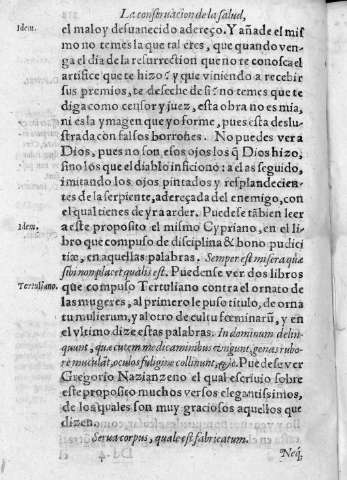 La conseruacion de la salud,
Idem. el malo y desuanecido adereço. Y añade el mis
mo no temes la que tal eres, que quando ven-
ga el dia de la resurrection que no te conosca el
artifice que te hizo? y que viniendo a recebir
sus premios, te deseche de si? no temes que te
diga como censor y juez, esta obra no es mia,
ni es la ymagen que yo forme, pues esta deslu-
strada con falsos borrones. No puedes ver a
Dios, pues no son esos ojos los q̃ Dios hizo,
sino los que el diablo inficionò: a el as seguido,
imitando los ojos pintados y resplandecien-
tes de la serpiente, adereçada del enemigo, con
el qual tienes de yr a arder. Puedese tãbien leer
Idem. a este proposito el mismo Cypriano, en el li-
bro que compuso de disciplina & bono pudici
tiæ, en aquellas palabras. Semper est misera quæ
sibi non placet qualis est. Puedense ver dos libros
Tertuliano. que compuso Tertuliano contra el ornato de
las mugeres, al primero le puso titulo, de orna
tu mulierum, y al otro de cultu fœminarũ, y en
el vltimo dize estas palabras. In dominum delin-
quunt, quæ cutem medicaminibus vngunt, genas rubo-
re muculãt, oculos fuligine collinunt, &c. Puedese ver
Gregorio Nazianzeno el qual escriuio sobre
este proposito muchos versos elegantissimos,
de los quales son muy graciosos aquellos que
dizen.
Serua corpus, quale est fabricatum.
Dd 4
Neq́;